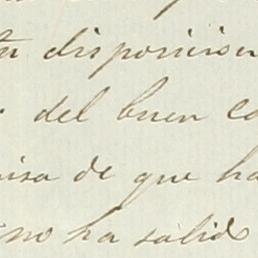 disposicion
del buen
de que ha
no ha salido